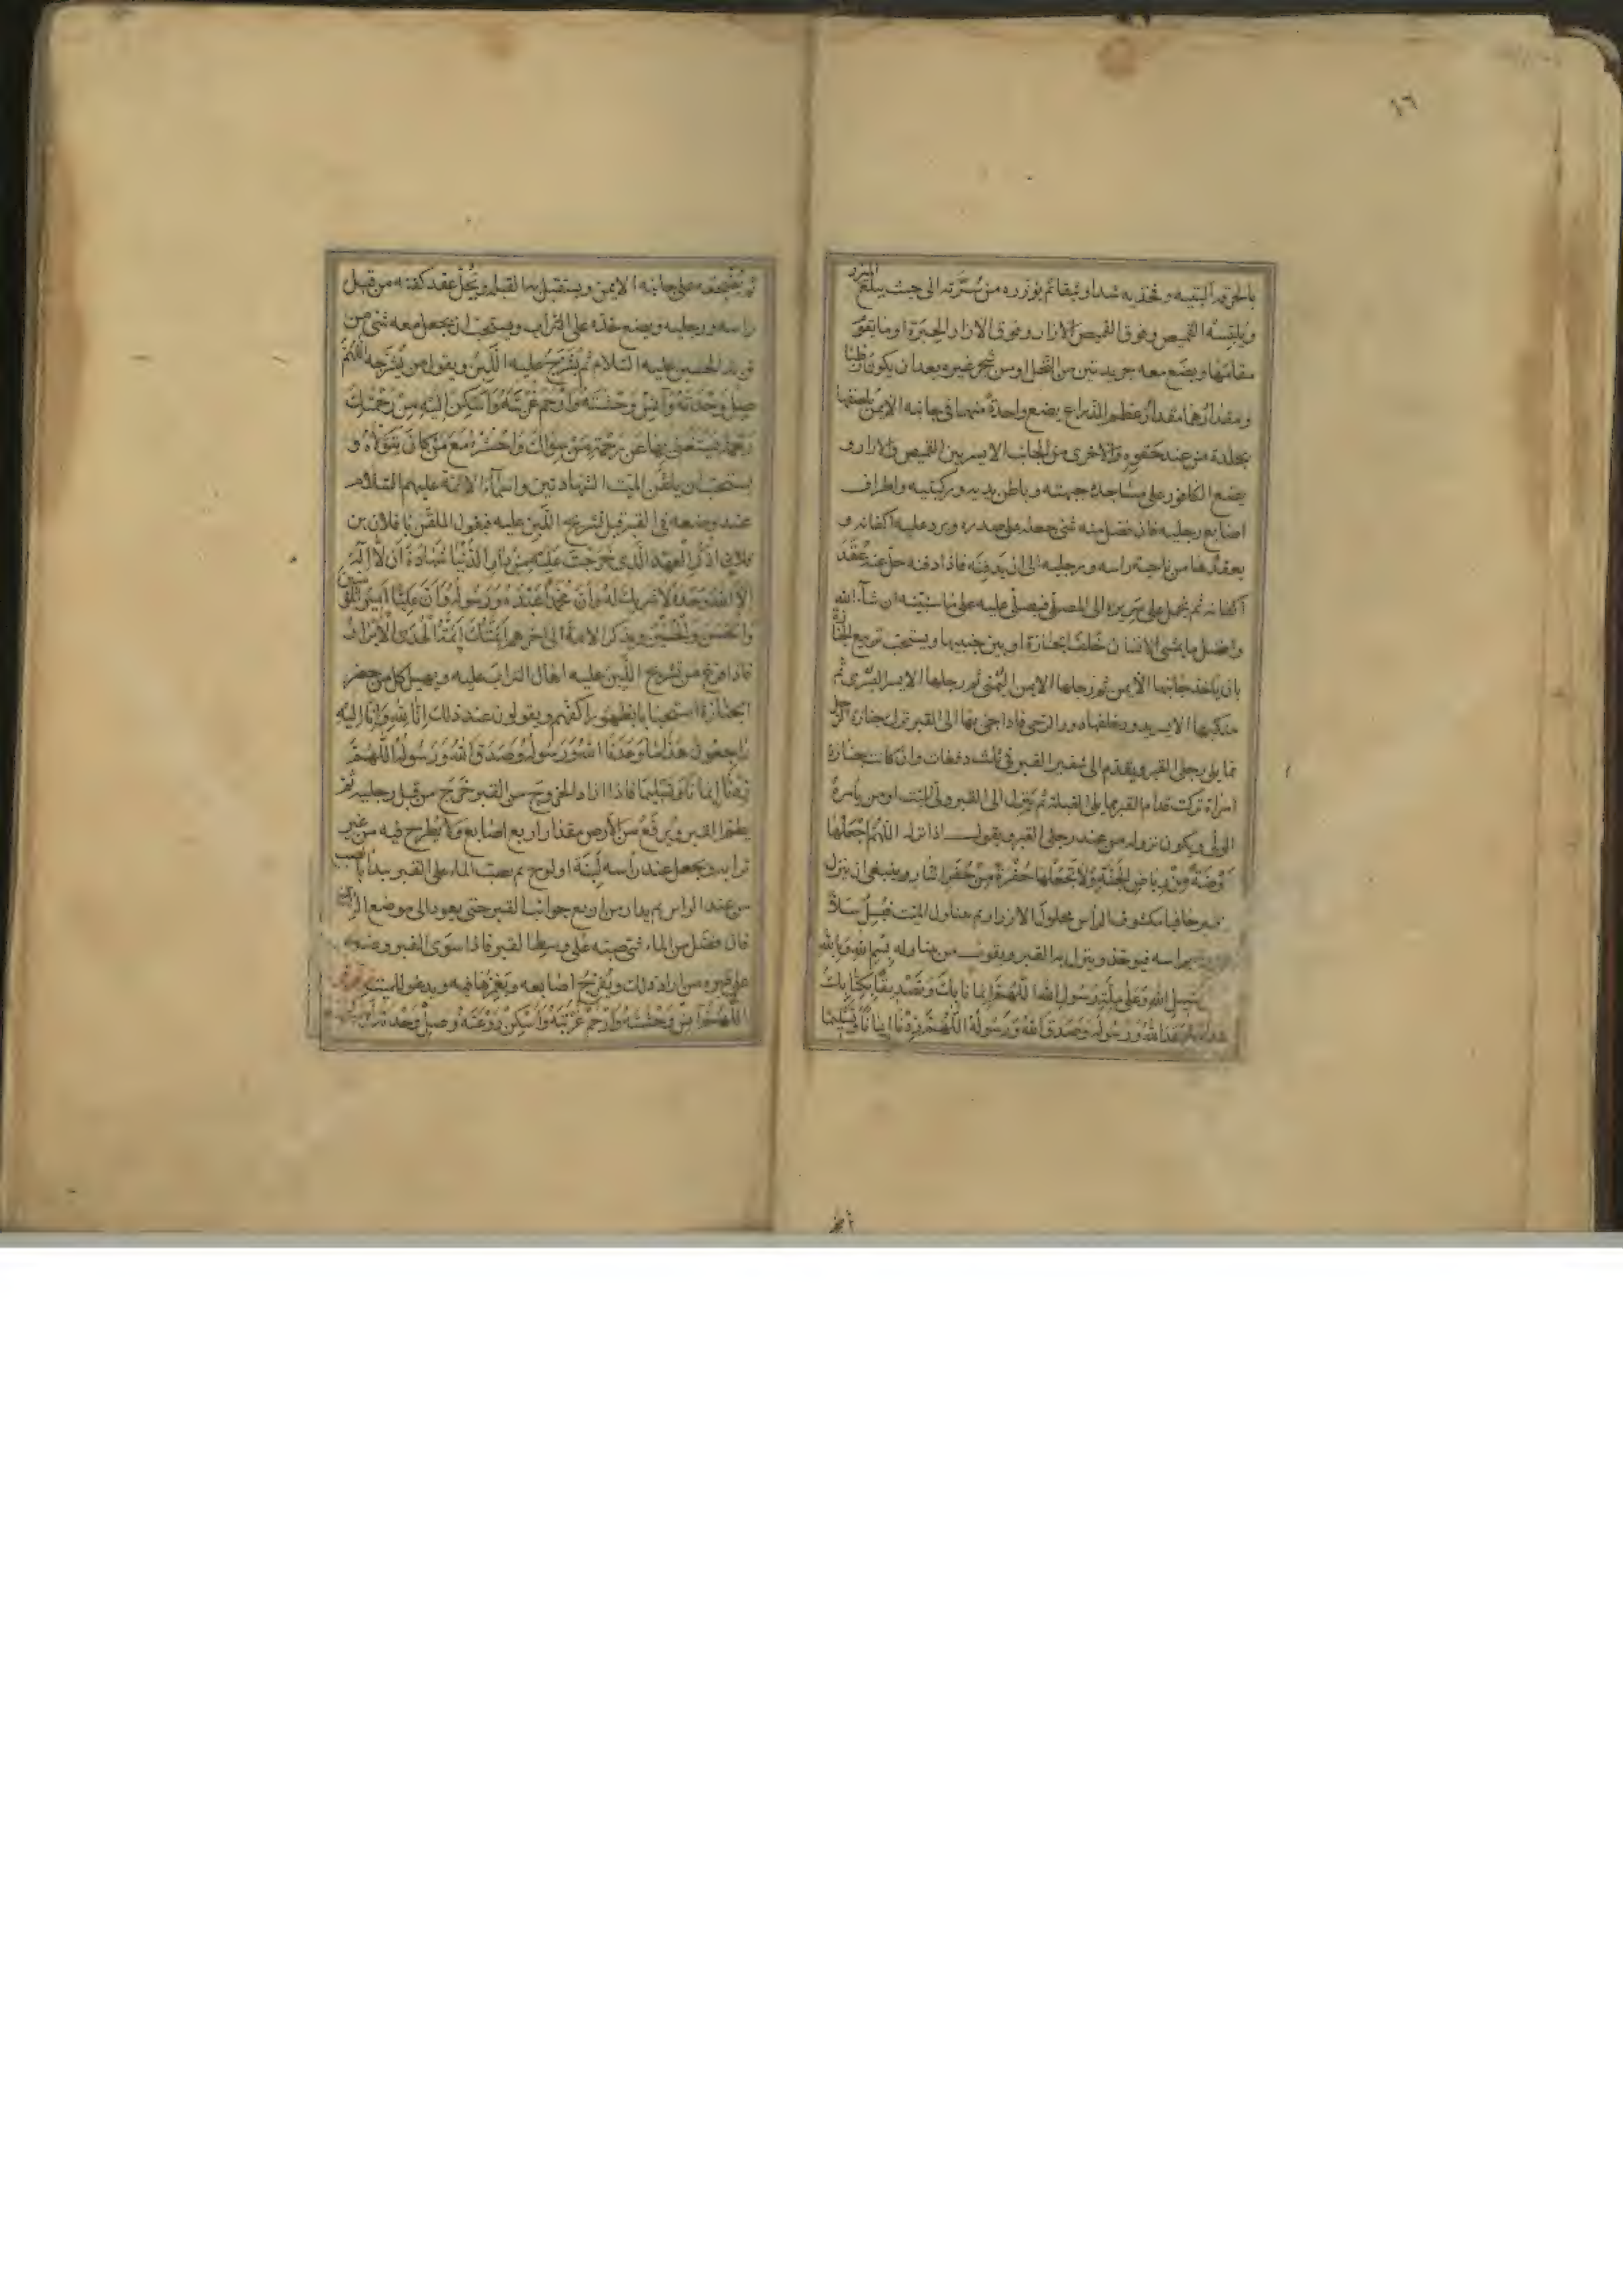 ١٦
بالخرقة البته وفخذيه شدا وثيقا ثم يؤزره من سرته الى حيث يبلغ المئزر
ويلبسه القميص وفوق القميص الازار وفوق الازار الحبرة او ما يقوم
مقامها ويضع معه جريدتين من النخل او من شجر غيره بعد ان يكون رطبا
ومقدارهما مقدار عظم الذراع يضع واحدة منهما في جانبه الايمن يلصقها
بجلده من عند حقوه والاخرى من الجانب الايسر بين القميص والازار و
يضع الكافور على مساجده جبهته وباطن يديه وركبتيه واطراف
اصابع رجليه فان فضل منه شئ جعله على صدره ويرد عليه اكفانه و
يعقدها من ناحية راسه ورجليه الى ان يدفنه فاذا دفنه حل عنه عقد
اكفانه ثم يحمل على سريره الى المصلى فيصلى عليه على ما سنبينه ان شاء الله
وافضل ما يمشى الانسان خلف الجنازة او بين جنبيها ويستحب تربيع الجنازة
بان ياخذ جانبها الايمن ثم رجلها الايمن اليمنى ثم رجلها الايسر اليسرى ثم
منكبها الايسر يدور خلفها دور الرحى فاذا جئ بها الى القبر ترك جنازة الرجل
مما يلي رجلي القبر ويقدم الى شفير القبر في ثلث دفعات وان كانت جنازة
امراة تركت قدام القبر مما يلي القبلة ثم ينزل الى القبر ولي الميت او من يامره
الولي ويكون نزوله من عند رجلي القبر ويقول اذا نزله اللهم اجعلها
روضة من رياض الجنة ولا تجعلها حفرة من حفر النار وينبغي ان ينزل
القبر حافيا مكشوف الراس محلول الازرار ثم يتناول الميت فيسل سلا
براسه فيوخذ وينزل به القبر ويقول من يتناوله بسم الله وبالله
وفي سبيل الله وعلى ملة رسول الله اللهم ايمانا بك وتصديقا بكتابك
هذا ما وعدنا الله ورسوله وصدق الله ورسوله اللهم زدنا ايمانا وتسليما
ثم يضجعه على جانبه الايمن ويستقبل به القبلة ويحل عقد كفنه من قبل
راسه ورجليه ويضع خده على التراب ويستحب ان يجعل معه شئ من
تربة الحسين عليه السلام ثم يشرج عليه اللبن ويقول من يشرجه اللهم
صل وحدته وآنس وحشته وارحم غربته واسكن اليه من رحمتك
رحمة يستغني بها عن رحمة من سواك واحشره مع من كان يتولاه و
يستحب ان يلقن الميت الشهادتين واسماء الائمة عليهم السلام
عند وضعه في القبر قبل تشريج اللبن عليه فيقول الملقن يا فلان بن
فلان اذكر العهد الذي خرجت عليه من دار الدنيا شهادة ان لا اله
الا الله وحده لا شريك له وان محمدا عبده ورسوله وان عليا امير المؤمنين
والحسن والحسين ويذكر الائمة الى اخرهم ائمتك ائمة الهدى الابرار
فاذا فرغ من تشريج اللبن عليه اهال التراب عليه ويهيل كل من حضر
الجنازة استحبابا بظهور اكفهم ويقولون عند ذلك انا لله وانا اليه
راجعون هذا ما وعدنا الله ورسوله وصدق الله ورسوله اللهم
زدنا ايمانا وتسليما فاذا اراد الخروج من القبر خرج من قبل رجليه ثم
يطم القبر ويرفع من الارض مقدار اربع اصابع ولا يطرح فيه من غير
ترابه ويجعل عند راسه لبنة او لوح ثم يصب الماء على القبر يبدا بالصب
من عند الراس ثم يدار من اربع جوانب القبر حتى يعود الى موضع الراس
فان فضل من الماء شئ صبه على وسط القبر فاذا سوى القبر وضع يده
على قبره من اراد ذلك ويفرج اصابعه ويغمزها فيه ويدعو للميت
اللهم آنس وحشته وارحم غربته واسكن روعته وصل وحدته